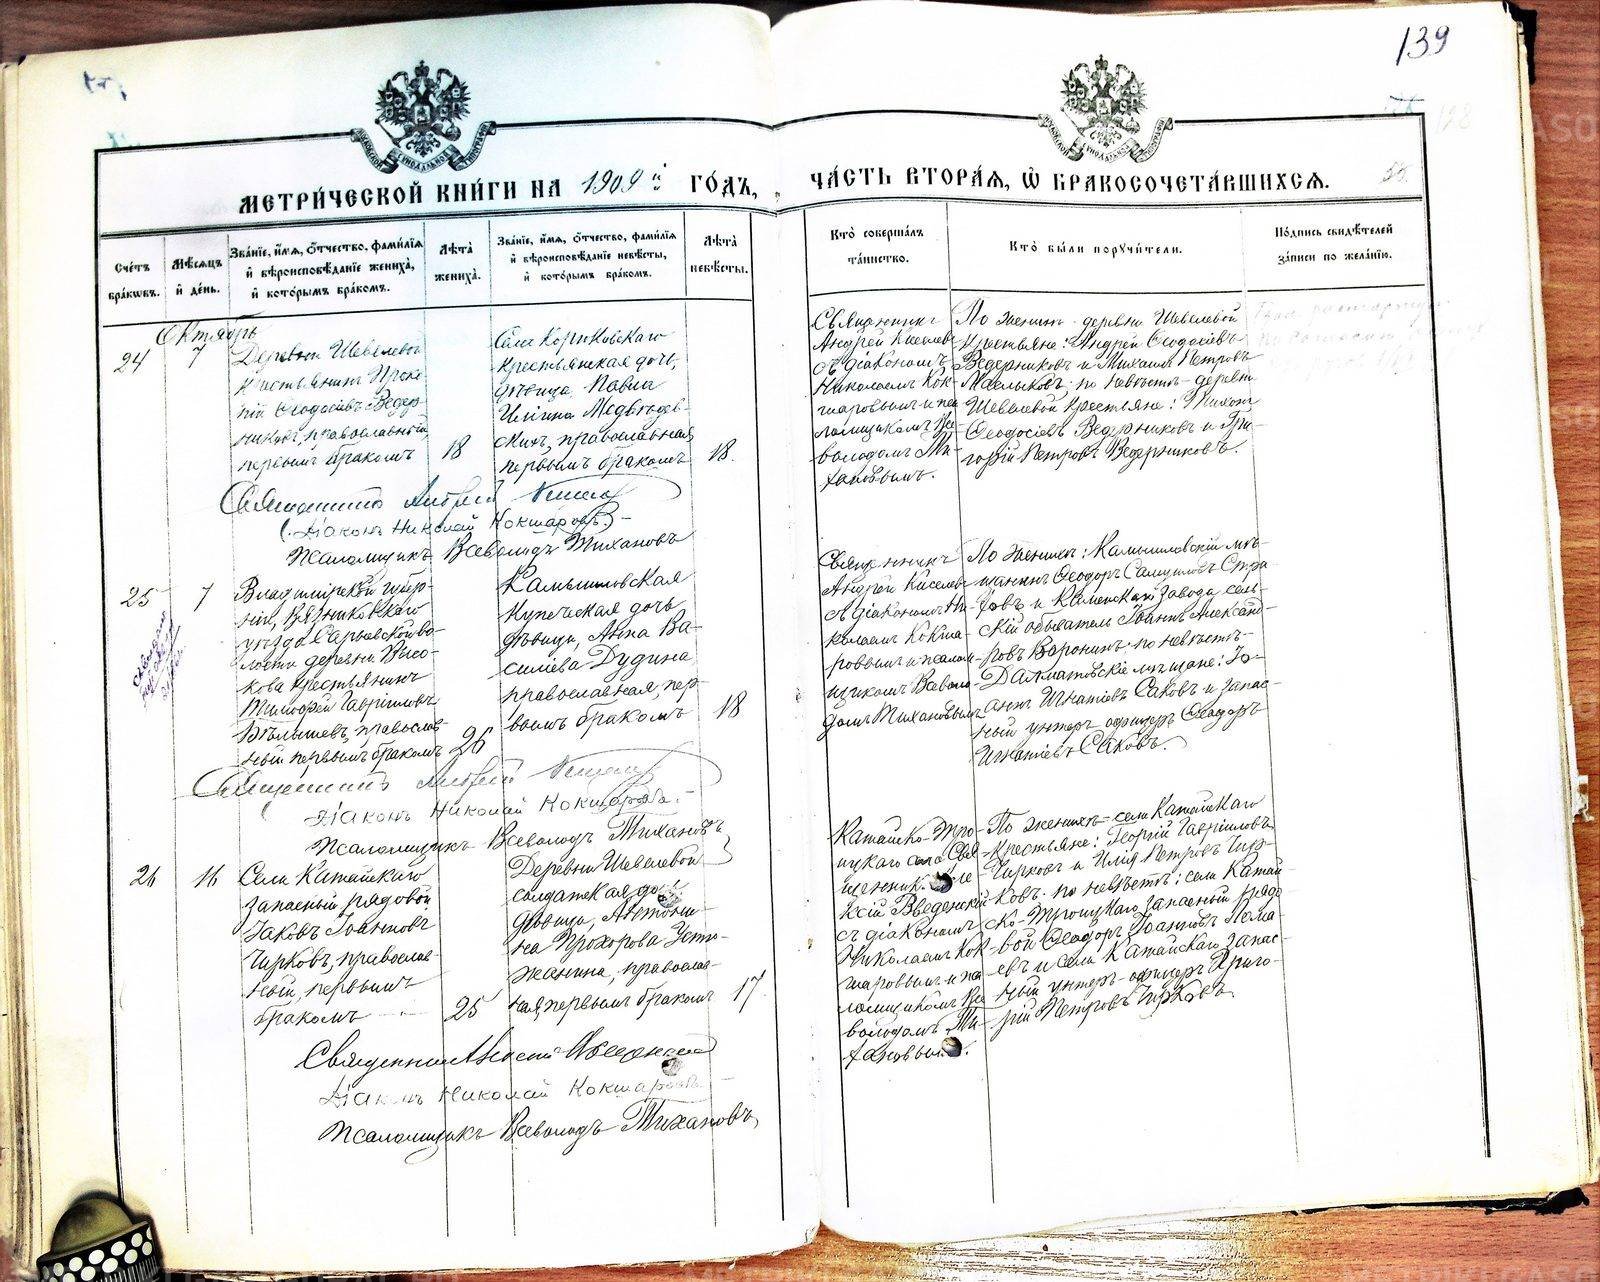 139
МЕТРИ́ЧЕСКОЙ КНИ́ГИ НА 1909й ГО́ДЪ,
ЧА́СТЬ ВТОРА́Я, Ѡ БРАКОСОЧЕТА́ВШИХСЯ.
Сче́тъ бра́кѡвъ.
Мѣ́сяцъ и҆ де́нь.
Зва́нїе, и҆́мя, ѻ҆́тчество, фами́лїя
и҆ вѣроисповѣ́данїе жениха̀,
и҆ кото́рымъ бра́комъ.
Лѣта̀ жениха̀.
Зва́нїе, и҆́мя, ѻ҆́тчество, фами́лїя
и҆ вѣроисповѣ́данїе невѣ́сты,
и҆ кото́рымъ бра́комъ.
Лѣта̀ невѣ́сты.
Кто̀ соверша́лъ та́инство.
Кто̀ бы́ли поручи́тели.
По́дпись свидѣ́телей за́писи по жела́нїю.
Октябрь
24
7
Деревни Шевелевой
крестьянинъ Проко-
пій Ѳеодосіевъ Ведер-
никовъ, православный,
первымъ бракомъ
18
Села Корюковскаго
крестьянская дочь,
дѣвица Павла
Иліина Медвѣдев-
скихъ, православная
первымъ бракомъ
18.
Священникъ
Андрей Киселевъ
съ діакономъ
Николаемъ Кок-
шаровымъ и пса-
ломщикомъ Все-
володомъ Ти-
хановымъ.
По женихѣ деревни Шевелевой
крестьяне: Андрей Ѳеодосіевъ
Ведерниковъ и Михаилъ Петровъ
по невѣстѣ деревни
Шевелевой крестьяне: Тихонъ
Ѳеодосіевъ Ведерниковъ и Гри-
горій Петровъ Ведерниковъ.
Священникъ Андрей Киселевъ
Діаконъ Николай Кокшаровъ
Псаломщикъ Всеволодъ Тихановъ
25
7
Владимірской губер-
ніи, Вязниковскаго
уѣзда Сарыевской во-
лости деревни Высо-
кова крестьянинъ
Тимофей Гавріиловъ
православ-
ный первымъ бракомъ
26
Камышловская
купеческая дочь
дѣвица, Анна Ва-
силіева Дудина
православная, пер-
вымъ бракомъ
18
Священникъ
Андрей Киселевъ
съ діакономъ Ни-
колаемъ Кокша-
ровымъ и псалом-
щикомъ Всеволо-
домъ Тихановымъ
По женихѣ: Камышловскій мѣ-
щанинъ Ѳеодоръ Самуиловъ
и Каменскаго Завода сель-
скій обыватель Іоаннъ Александ-
ровъ Воронинъ по невѣстѣ
Далматовскіе мѣщане: Іо-
аннъ Игнатіевъ Саковъ и запас-
ный унтеръ офицеръ Ѳеодоръ
Игнатіевъ Саковъ.
Священникъ Андрей Киселевъ
Діаконъ Николай Кокшаровъ.
Псаломщикъ Всеволодъ Тихановъ
26
16
Села Катайскаго
запасный рядовой
Іаковъ Іоанновъ
Чирковъ, православ-
ный, первымъ
бракомъ
25
Деревни Шевелевой
солдатская дочь
дѣвица, Антони-
на Прохорова Устю-
жанина, православ-
ная, первымъ бракомъ
17.
Катайско-Тро-
ицкаго села Свя-
щенникъ Але-
ксій Введенскій
съ діакономъ
Николаемъ Кок-
шаровымъ и пса-
ломщикомъ Все-
володомъ Ти-
хановымъ.
По женихѣ села Катайскаго
крестьяне: Георгій Гавріиловъ
Чирковъ и Илія Петровъ Чир-
ковъ по невѣстѣ: села Катай-
ско-Троицкаго запасный рядо-
вой Ѳеодоръ Іоанновъ
и села Катайскаго запас-
ный унтеръ-офицеръ Григо-
рій Петровъ Чирковъ.
Священникъ Алексій Введенскій
Діаконъ Николай Кокшаровъ
Псаломщикъ Всеволодъ Тихановъ